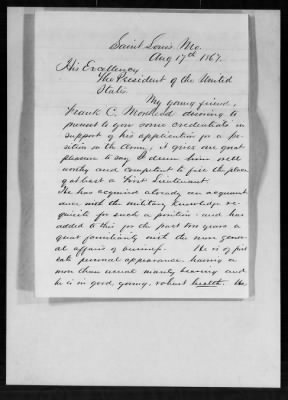 Saint Louis, Mo.
Aug 17th 1867.
His Excellency
The President of the United
States.
My young friend,
Frank C. desiring to
present to you some credentials in
support of his application for a po-
sition in the Army, it gives me great
pleasure to say I deem him well
worthy and competent to fill the place
of at least a First Lieutenant.
He has acquired already an acquaint-
ance with the military knowledge re-
quisite for such a position - and has
added to this for the past two years a
great familiarity with the more gene-
ral affairs of business. He is of
personal appearance, having a
more than usual manly bearing and
he is in good, young, robust health. He